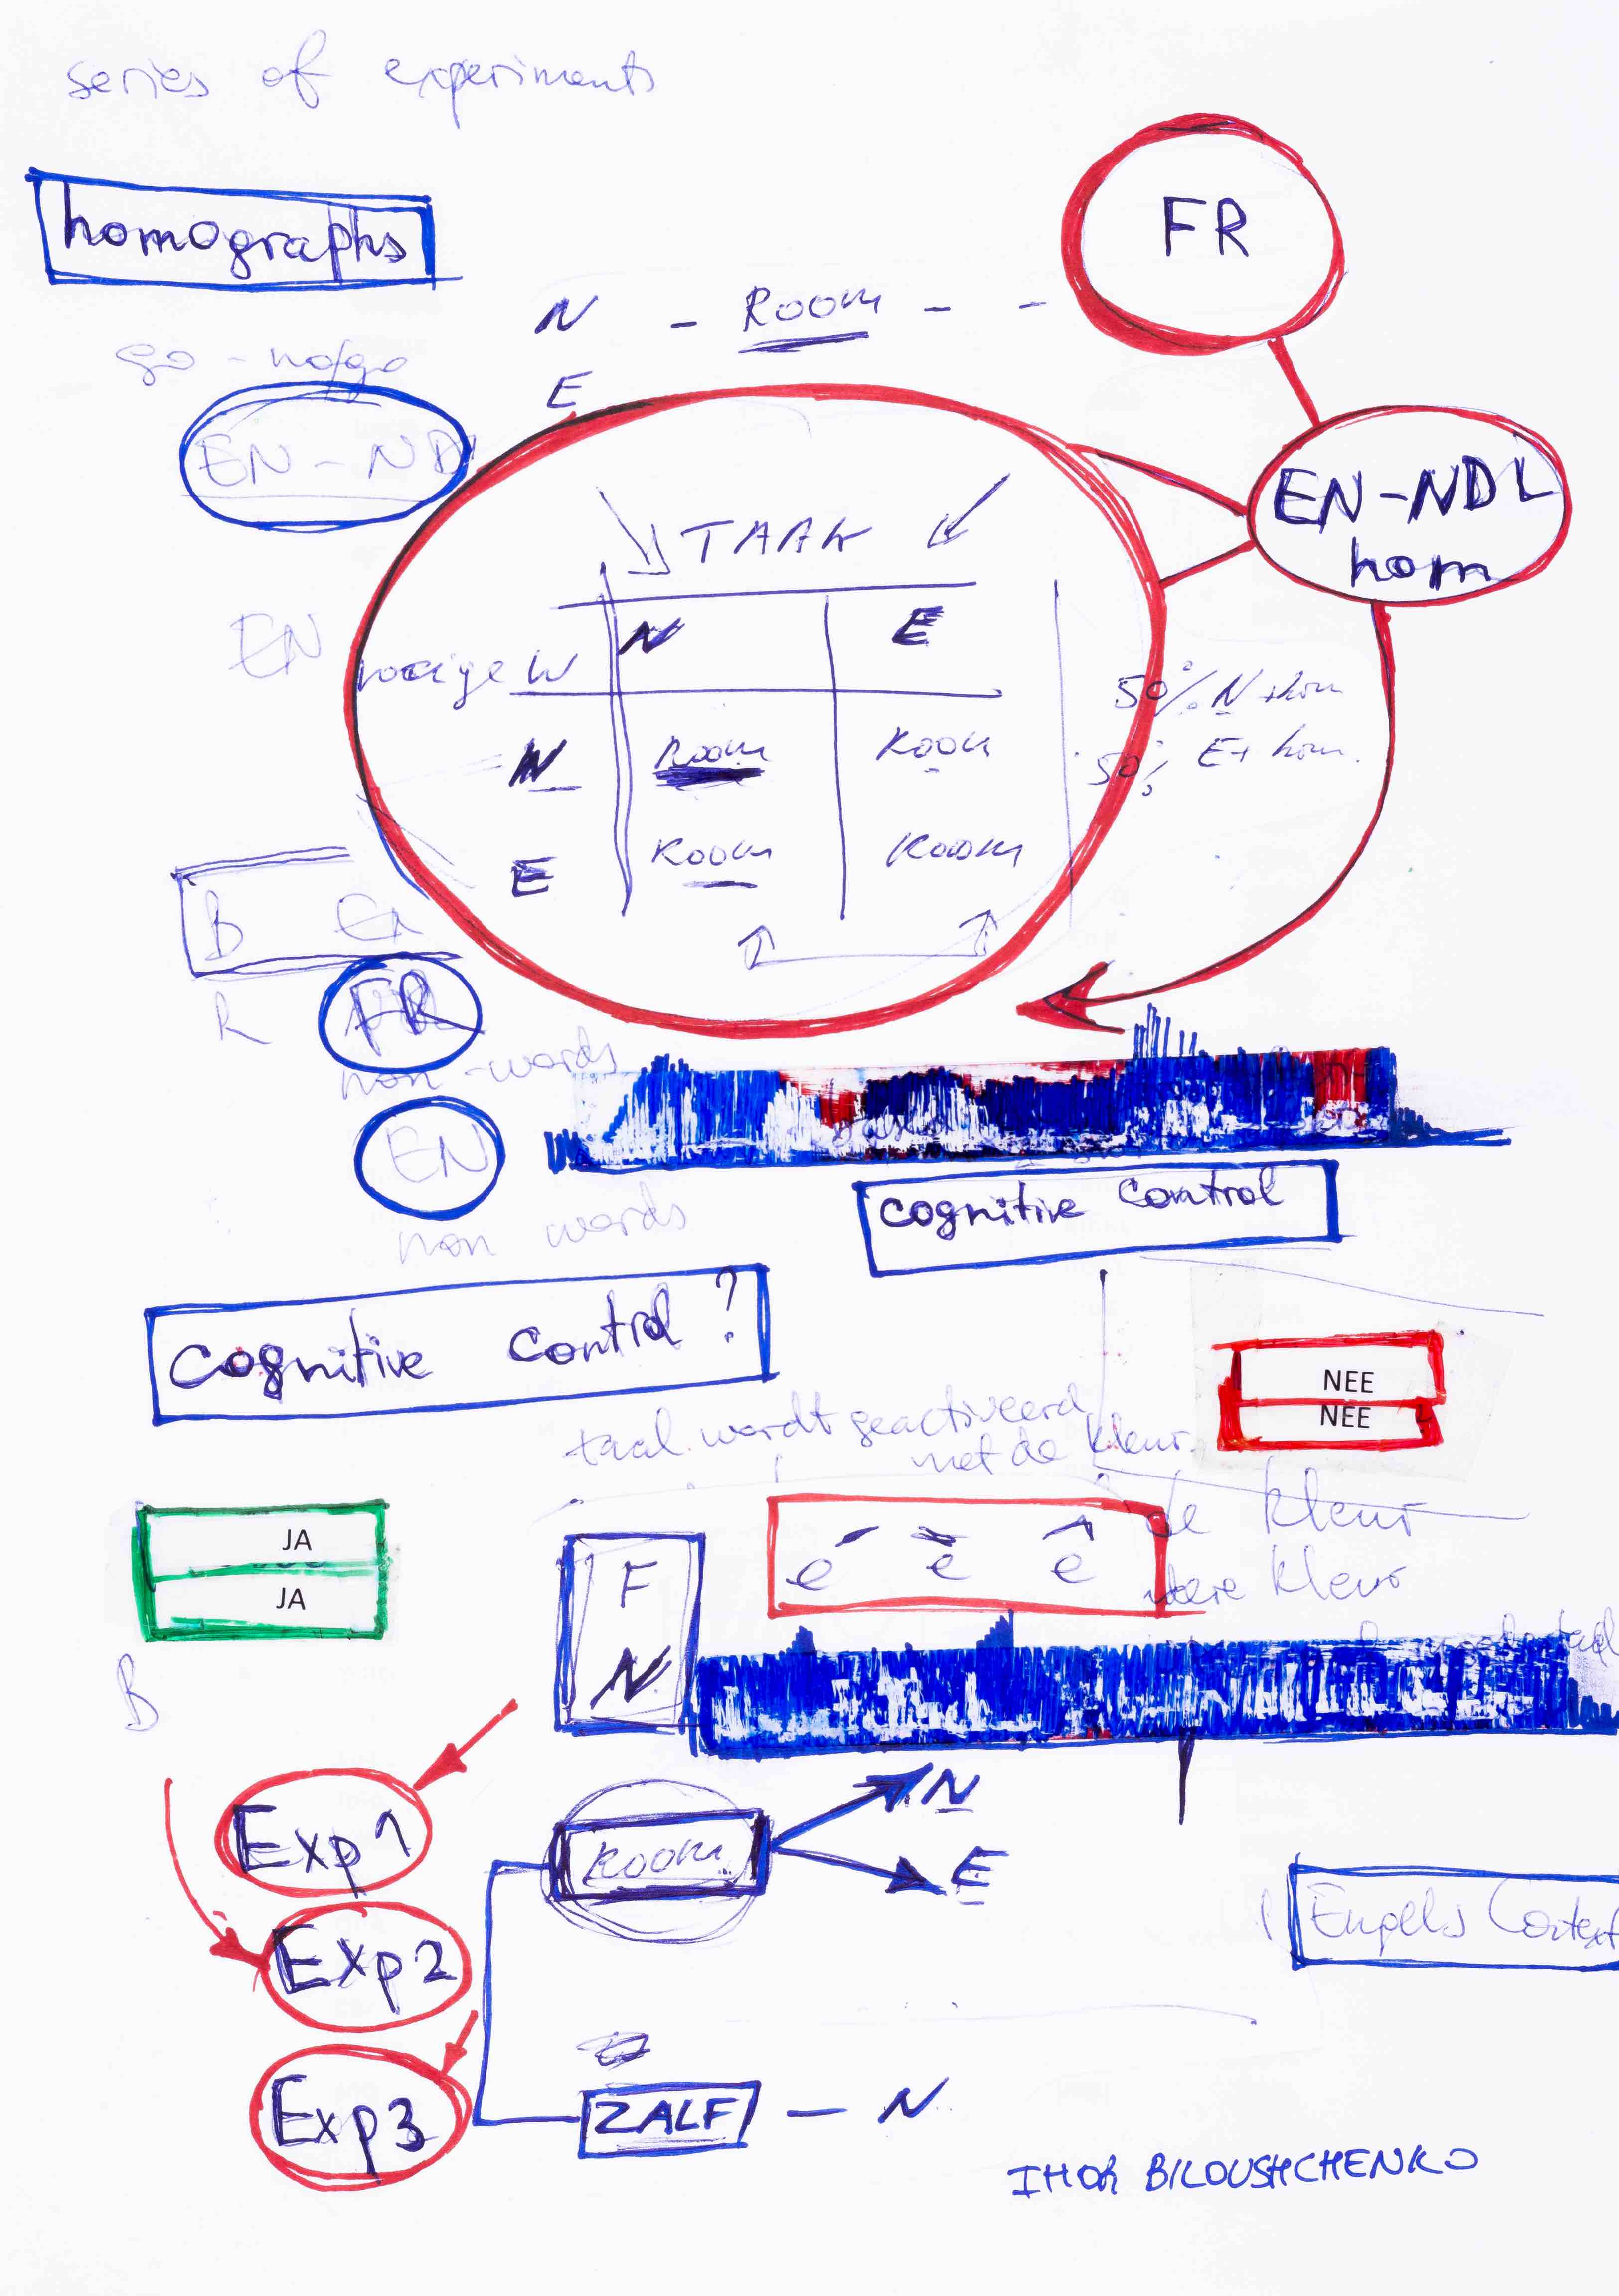 series of experiments
homographs
FR
N - Room - -
go - no/go
E
EN - ND
EN-NDL
hom
TAAK
EN
N E
vorige W
50% N + hom
N Room Room
50% E + hom.
E Room Room
B EN
R FR
non-words
EN
non words
cognitive control
Cognitive Control ?
NEE
NEE
taal wordt geactiveerd
met de kleur
de kleur
JA
F
é è ê
kleur
JA
N
B
Exp 1
Room
N
E
Exp 2
Engels Context
Exp 3
ZALF - N
IHOR BILOUSHCHENKO